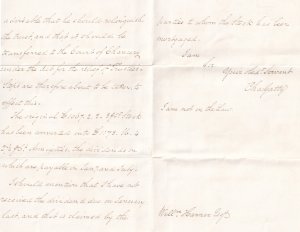 able that he should relinquish
the trust, and that it should be
transferred to the Court of Chancery
under the Act for the relief of Trustees
are therefore about to be taken to
effect this.
The original £
has been converted into £
the dividends on
which are payable in Jany and July.
I should mention that I have not
received the dividend due in January
last, and that is claimed by the
parties to whom the Stock has been
mortgaged.
I am
Sir
Your Obt Servant
I am not in the law.
Willm Esqr